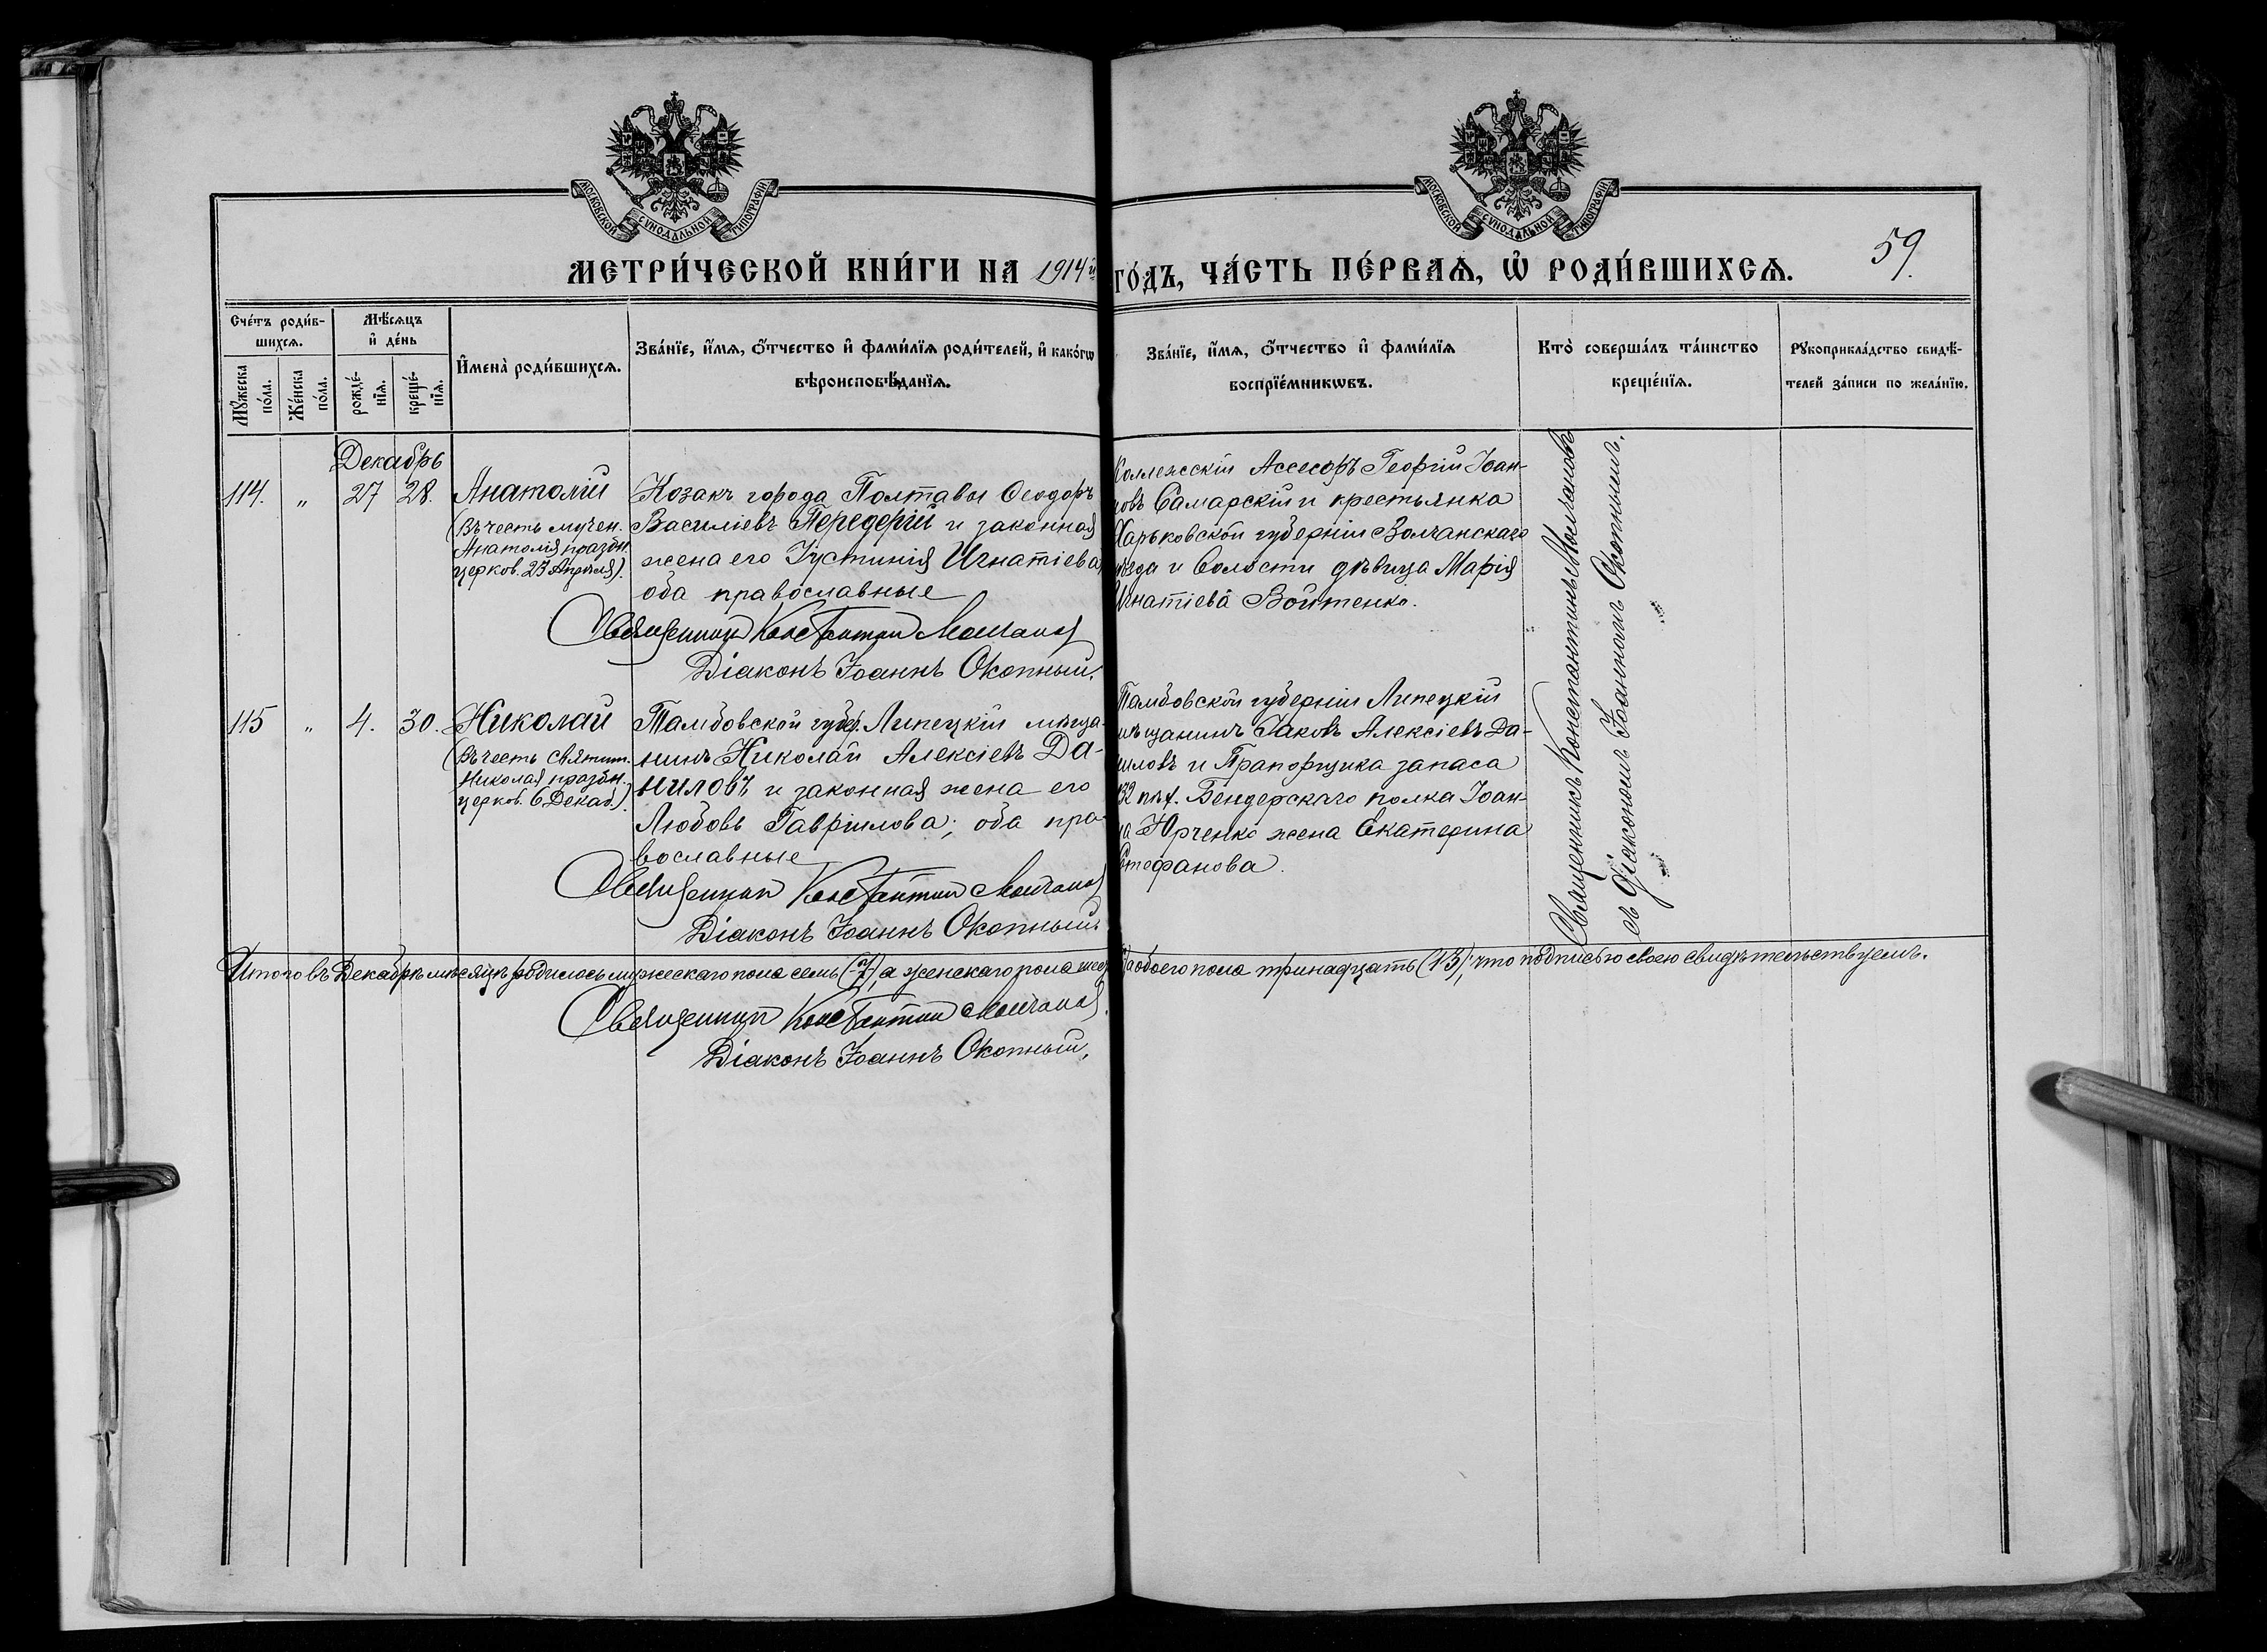 МОСКОВСКОЙ СѴНОДАЛЬНОЙ ТИПОГРАФІИ
МОСКОВСКОЙ СѴНОДАЛЬНОЙ ТИПОГРАФІИ
59.
МЕТРИ́ЧЕСКОЙ КНИ́ГИ НА 1914й ГО́ДЪ, ЧА́СТЬ ПЕ́РВАѦ, Ѡ҆ РОДИ́ВШИХСѦ.
Сче́тъ роди́в-
шихсѧ.
Мѣ́сѧцъ
и҆ де́нь
Мꙋ́жеска
по́ла.
Же́нска
по́ла.
рожде́-
нїѧ.
креще́-
нїѧ.
И҆мена̀ роди́вшихсѧ.
Зва́нїе, и҆́мѧ, ѻ҆́тчество и҆ фами́лїѧ роди́телей, и҆ како́гѡ
вѣроисповѣ́данїѧ.
Зва́нїе, и҆́мѧ, ѻ҆́тчество и҆ фами́лїѧ
воспрїе́мникѡвъ.
Кто̀ соверша́лъ та́инство
креще́нїѧ.
Рꙋкоприкла́дство свидѣ́-
телей за́писи по жела́нїю.
Декабрь
114. „ 27 28. Анатолій
(Въ честь мучен.
Анатолія праздн.
церков. 23 Апрѣля).
Козакъ города Полтавы Ѳеодоръ
Василіевъ Передерій и законная
жена его Іустинія Игнатіева
оба православные
Священникъ Константинъ Молчановъ
Діаконъ Іоаннъ Окопный.
Коллежскій Ассесоръ Георгій Іоан-
новъ Самарскій и крестьянка
Харьковской губерніи Волчанскаго
уѣзда и волости дѣвица Марія
Игнатіева Войтенко.
115 „ 4. 30. Николай
(Въ честь святит.
Николая праздн.
церков. 6 Декаб.).
Тамбовской губер. Липецкій мѣща-
нинъ Николай Алексіевъ Да-
ниловъ и законная жена его
Любовь Гавріилова; оба пра-
вославные
Священникъ Константинъ Молчановъ
Діаконъ Іоаннъ Окопный.
Тамбовской губерніи Липецкій
мѣщанинъ Іаковъ Алексіевъ Да-
ниловъ и Прапорщика запаса
132 пѣх. Бендерскаго полка Іоан-
на Юрченко жена Екатерина
Стефанова.
Священникъ Константинъ Молчановъ
съ Діакономъ Іоанномъ Окопнымъ.
Итого въ Декабрѣ мѣсяцѣ родилось мужескаго пола семь (7), а женскаго пола шесть, а обоего пола тринадцать (13), что подписью своею свидѣтельствуемъ.
Священникъ Константинъ Молчановъ
Діаконъ Іоаннъ Окопный.